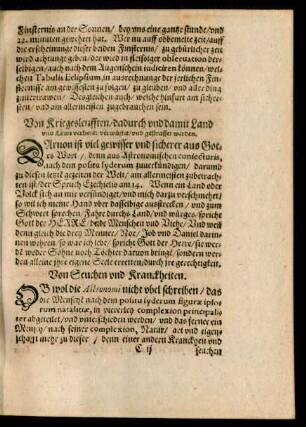 Finsternis an der Sonnen/ bey vns eine gantze stunde/vnd
22. minuten gewehret hat. Wer nu auff obbemelte zeit/auff
die erscheinunge dieser beiden Finsternis/ zu gebürlicher zeit
wird achtunge geben/der wird in fleissiger obseruation der-
selbigen/auch nach dem Augenschein iudiciren können/wel-
chen Tabulis Eclipsium, in ausrechnunge der jerlichen Finster-
nissen am gewissesten zu folgen/ zu gleuben/vnd aller ding
zuuertrawen/ Desgleichen auch/ welche hinfurt am sicher-
sten/ vnd am allermeisten zugebrauchen sein.
Von Kriegesleufften/dadurch vnd damit Land
vnd Leute verheret/ verwüstet/vnd gestraffet werden.
DAruon ist viel gewisser vnd sicherer aus Got-
tes Wort/ denn aus Astronomischen coniecturis,
nach dem positu syderum zuuerkündigen/ darumb
zu diesen letzt gezeiten der Welt/ am allermeisten zubetrach-
ten ist/der Spruch Ezechielis am 14. Wenn ein Land oder
Volck sich an mir versündiget/vnd mich darzu verschmehet/
so wil ich meine Hand vber dasselbige ausstrecken/ vnd zum
Schwert sprechen/ Fahre durchs Land/ vnd würge/ spricht
Gott der HERRE/ beide Menschen vnd Viehe/ Vnd weñ
denn gleich die drey Menner/ Noe/ Job vnd Daniel darin-
nen wohren/ so war ich lebe/ spricht Gott der Herre/ sie wer-
den weder Söhne noch Töchter daruon bringen/ sondern wer-
den alleine ihre eigene Seele erretten durch ihre gerechtigkeit.
Von Seuchen vnd Kranckheiten.
OB wol die Astronomi nicht vbel schreiben/ das
die Mensche nach dem positu syderum figuræ ipso-
rum natalitiæ, in viererley complexion principali-
ter abgeteilet/vnd vnterschieden werden/ vnd das ferner ein
Mensch/ nach seiner complexion, Natur/ art vnd eigen-
schafft mehr zu dieser/ denn einer andern Kranckheit vnd
C ij
seuchen